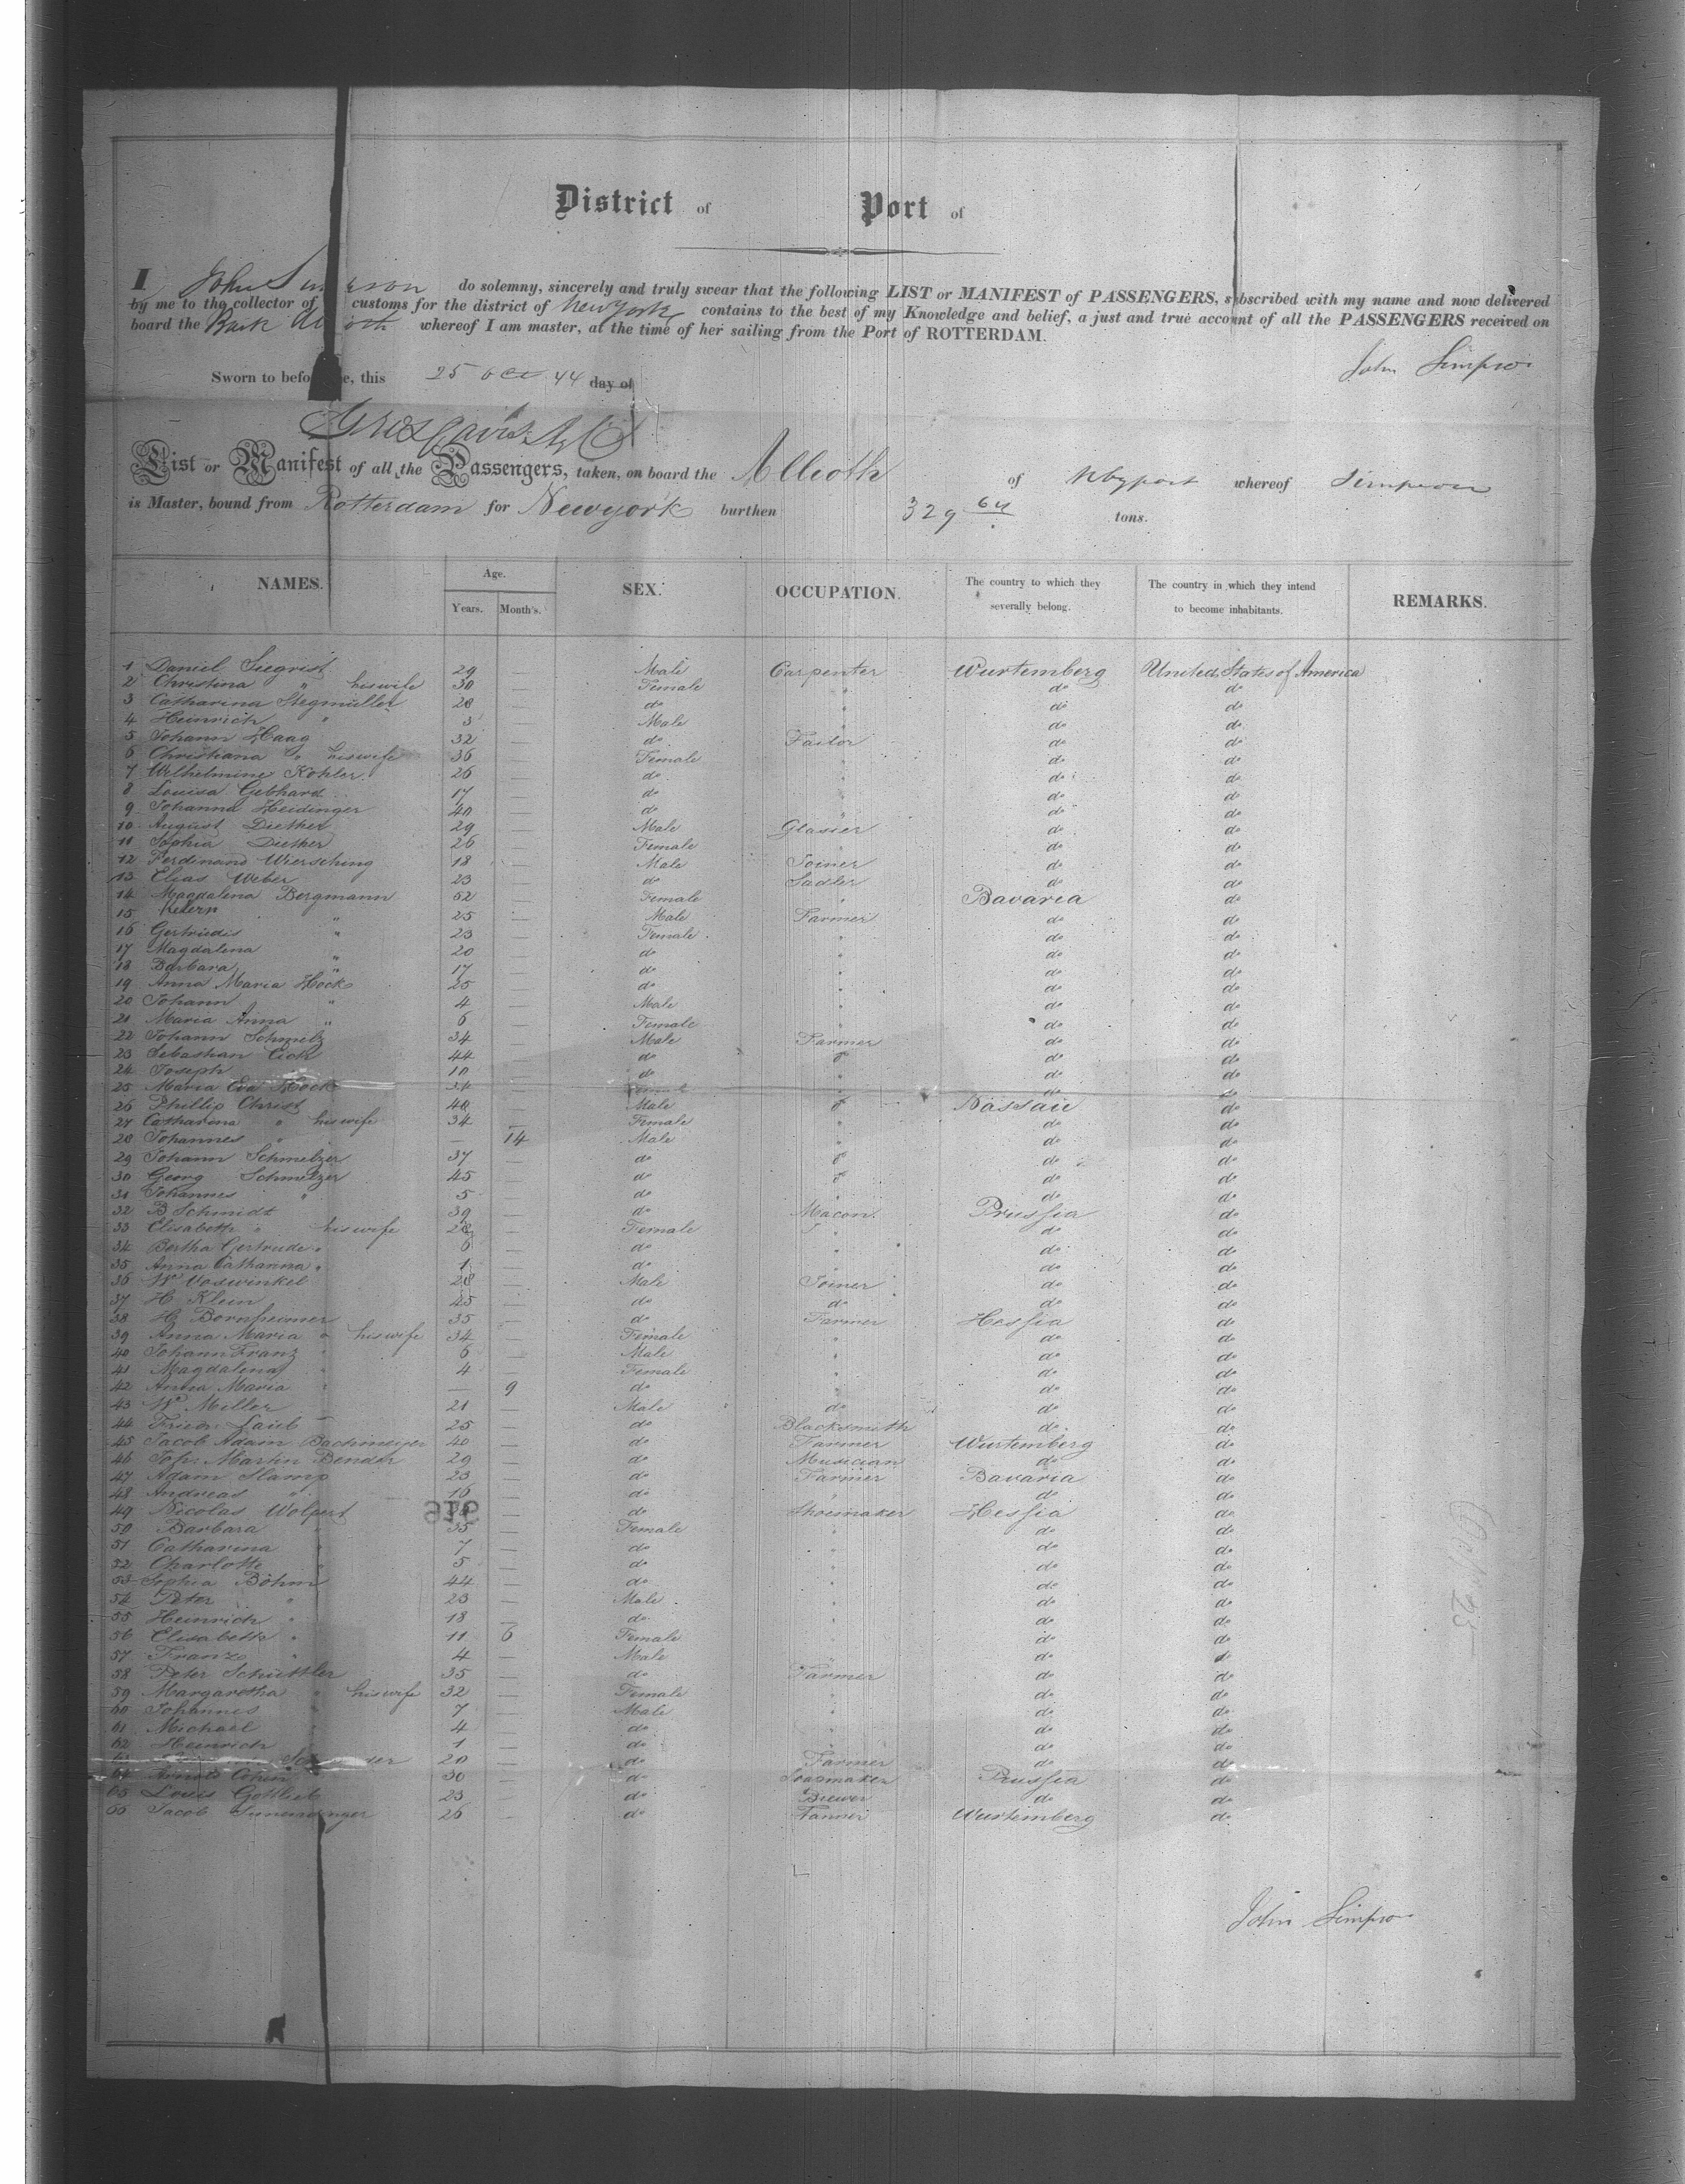 District of Port of
I John Simpson do solemny, sincerely and truly swear that the following LIST or MANIFEST of PASSENGERS, subscribed with my name and now delivered
by me to the collector of customs for the district of New York contains to the best of my Knowledge and belief, a just and true account of all the PASSENGERS received on
board the Bark whereof I am master, at the time of her sailing from the Port of ROTTERDAM.
John Simpson
Sworn to before me, this 25 Oct 44 day of
List or Manifest of all the Passengers, taken, on board the Allioth of Nbyport whereof Simpson
is Master, bound from Rotterdam for Newyork burthen 329 64 tons.
NAMES. Age. Years. Month's. SEX. OCCUPATION. The country to which they severally belong. The country in which they intend to become inhabitants. REMARKS.
1 Daniel Siegrist 29 — Male Carpenter Wurtemberg United States of America
2 Christina " his wife 30 — Female " do do
3 Catharina Stegmüller 28 — do " do do
4 Heinrich " 3 — Male " do do
5 Johann Haag 32 — do Tailor do do
6 Christiana " his wife 36 — Female " do do
7 Wilhelmine Kohler 26 — do " do do
8 Louisa Gebhard 17 — do " do do
9 Johanna Heidinger 40 — do " do do
10 August Diether 29 — Male Glasier do do
11 Sophia Diether 26 — Female " do do
12 Ferdinand Wiersching 18 — Male Joiner do do
13 Elias Weber 23 — do Sadler do do
14 Magdalena Bergmann 52 — Female " Bavaria do
15 " 25 — Male Farmer do do
16 Gertrudis " 23 — Female " do do
17 Magdalena " 20 — do " do do
18 Barbara " 17 — do " do do
19 Anna Maria Hock 25 — do " do do
20 Johann " 4 — Male " do do
21 Maria Anna " 6 — Female " do do
22 Johann Schmelz 34 — Male Farmer do do
23 Sebastian 44 — do do do
24 Joseph 10 — do " do do
25 Maria Eva Hock Female do do
26 Phillip Christ 40 — Male Nassau do
27 Catharina " his wife 34 — Female " do do
28 Johannes " — 14 Male " do do
29 Johann Schmelzer 37 — do do do
30 Georg Schmelzer 45 — do do do
31 Johannes " 5 — do " do do
32 B Schmidt 39 — do Macon Prussia do
33 Elisabeth " his wife 28 — Female " do do
34 Bertha Gertrude " 6 — do " do do
35 Anna Catharina " 1 — do " do do
36 W Voswinkel 28 — Male Joiner do do
37 H. Klein 45 — do do do do
38 H. Bornheimer 35 — do Farmer Hessia do
39 Anna Maria " his wife 34 — Female " do do
40 Johann Franz " 6 — Male " do do
41 Magdalena " 4 — Female " do do
42 Anna Maria " — 9 do " do do
43 W Miller 21 — Male do do do
44 Fried. Laib 25 — do Blacksmith do do
45 Jacob Adam Bachmeyer 40 — do Farmer Wurtemberg do
46 Joh. Martin Bender 29 — do Musician do do
47 Adam Stamp 23 — do Farmer Bavaria do
48 Andreas " 16 — do " do do
49 Nicolas Wolpert — do Shoemaker Hessia do
50 Barbara " 35 — Female " do do
51 Catharina " 7 — do " do do
52 Charlotte " 5 — do " do do
53 Sophia Böhm 44 — do " do do
54 Peter " 23 — Male " do do
55 Heinrich " 18 — do " do do
56 Elisabeth " 11 6 Female " do do
57 Franz " 4 — Male " do do
58 Peter Schuttler 35 — do Farmer do do
59 Margaretha " his wife 32 — Female " do do
60 Johannes " 7 — Male " do do
61 Michael " 4 — do " do do
62 Heinrich " 1 — do " do do
63 20 — do Farmer do do
64 Arnold Cohen 30 — do Soapmaker Prussia do
65 Louis Gottlieb 23 — do Brewer do do
66 Jacob 26 — do Tanner Wurtemberg do
John Simpson